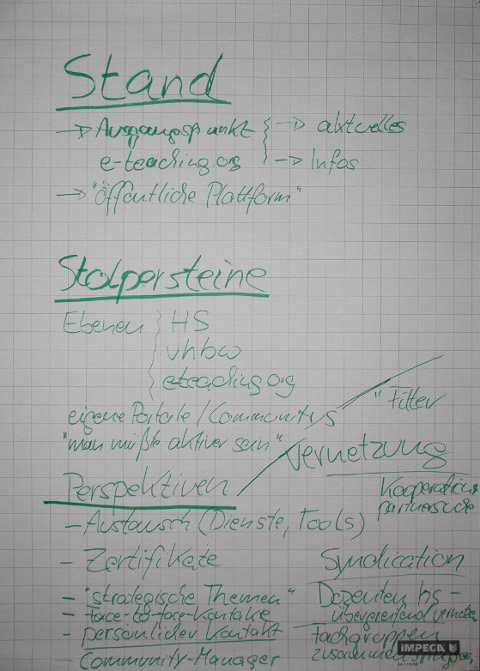 Stand
→ Ausgangspunkt } → aktuelles
e-teaching.org } → Infos
→ "öffentliche Plattform"
Stolpersteine
Ebenen } HS
vhbw
eteaching.org
eigene Portale / Communitys
"Filter
"man müßte aktiver sein"
Vernetzung
Perspektiven
Kooperations
partnersuche
- Austausch (Dienste, Tools)
- Zertifikate
Syndication
- "strategische Themen"
Dozenten hs-
- face-to-face-Kontakte
übergreifend
- persönlicher Kontakt
Fachgruppen
Community-Manager
IMPEGA